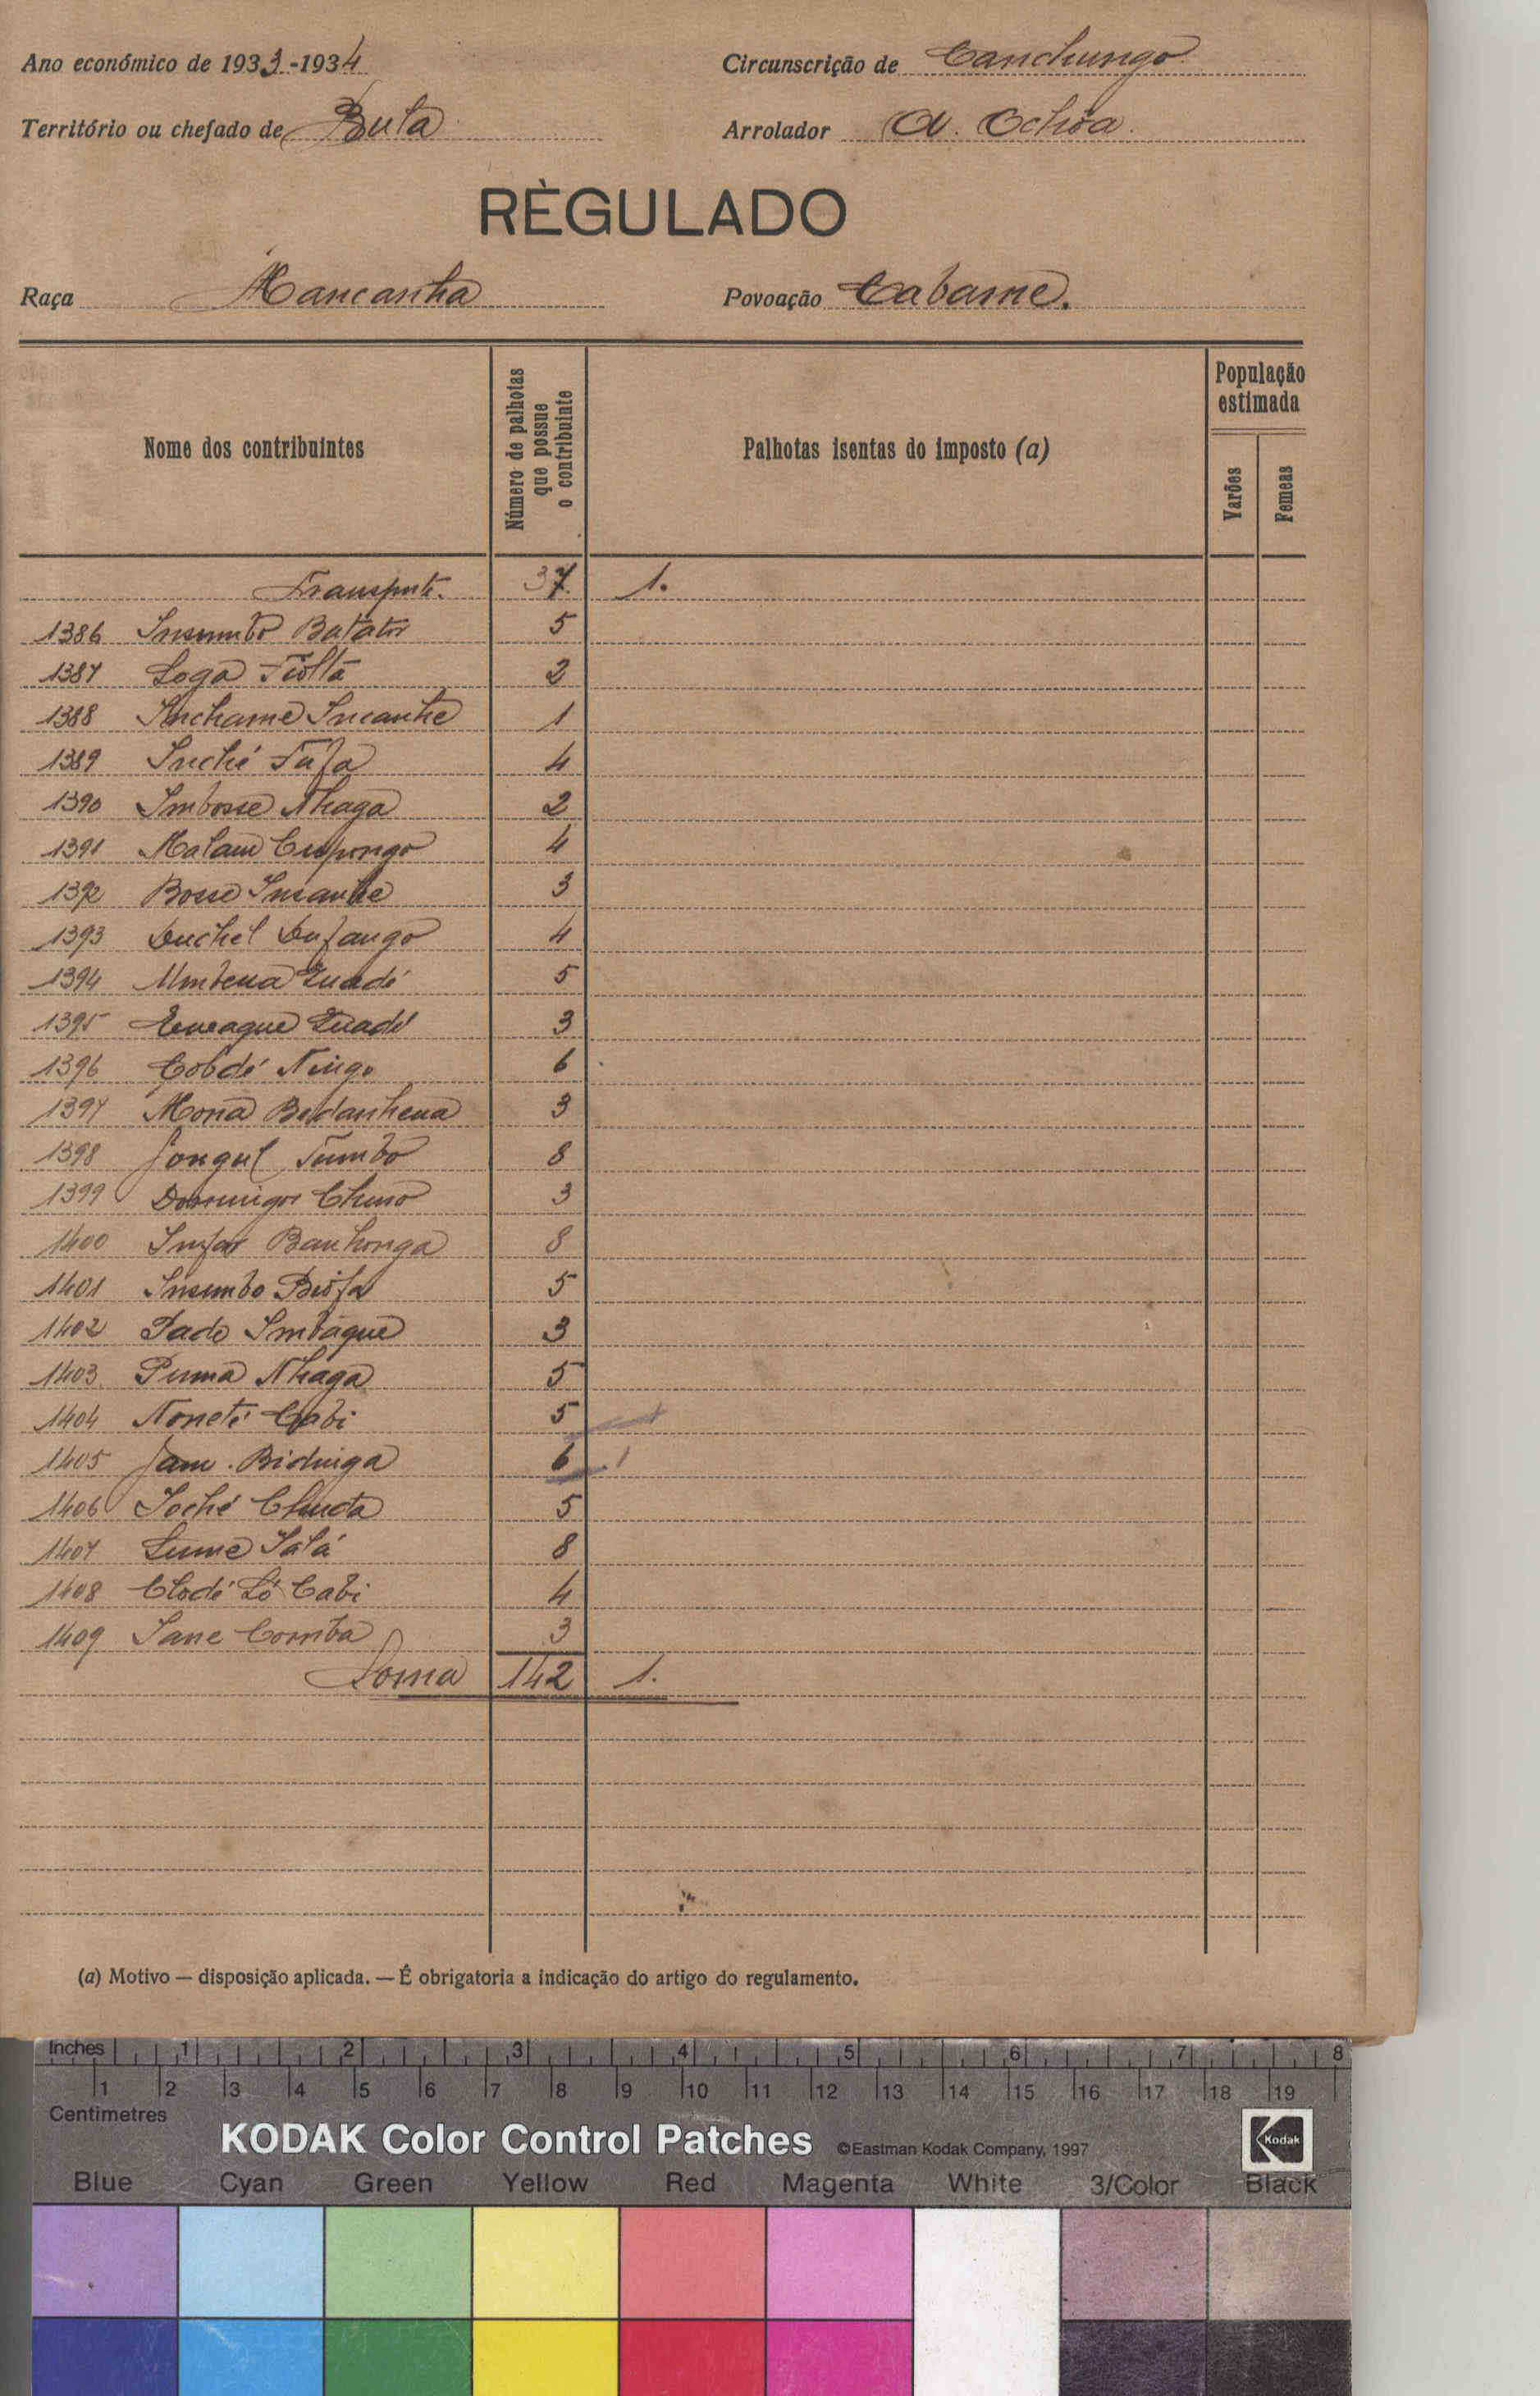 Ano económico de 1933-1934 Circunscrição de Canchungo
Território ou chefado de Bula Arrolador A. Ochôa.
RÈGULADO
Raça Mancanha Povoação Cabame.
Nome dos contribuintes
Número de palhotas que possue o contribuinte
Palhotas isentas do imposto (a)
População estimada
Varões
Femeas
Transporte. 37 1.
1386 Insumbo Batator 5
1387 Loga 2
1388 Inchame Incanhe 1
1389 Inché Fafa 4
1390 Imbosse Nhaga 2
1391 Malam Cupongo 4
1392 Bosse Incanhe 3
1393 4
1394 Umbena Quadé 5
1395 Quadé 3
1396 Cobdé Ningo 6
1397 Mona Bedanhena 3
1398 Jongul Tumbo 8
1399 Domingos 3
1400 Banhonga 8
1401 Insumbo 5
1402 Pade Imbaque 3
1403 Puma Nhaga 5
1404 Noneté Cabi 5
1405 Jam. Biduiga 6 1
1406 Joché 5
1407 Lume Salá 8
1408 Clodé Ló Cabi 4
1409 Sane Comba 3
Soma 142 1.
(a) Motivo — disposição aplicada. — É obrigatoria a indicação do artigo do regulamento.
Inches 1 2 3 4 5 6 7 8
1 2 3 4 5 6 7 8 9 10 11 12 13 14 15 16 17 18 19
Centimetres
KODAK Color Control Patches ©Eastman Kodak Company, 1997 Kodak
Blue Cyan Green Yellow Red Magenta White 3/Color Black